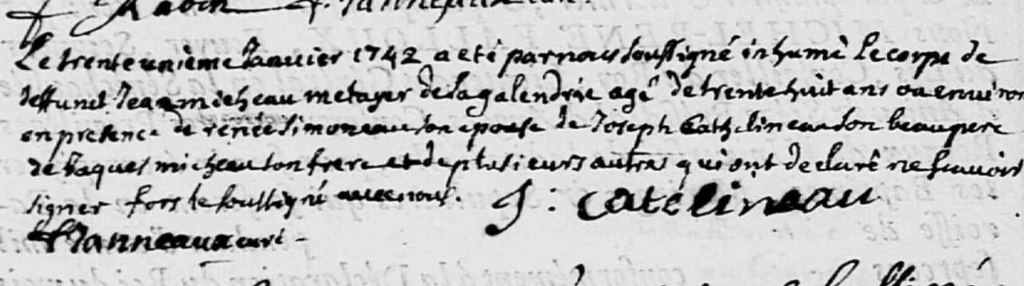 Le trente unieme Janvier 1742 a eté par nous soussigné inhumé le corps de
deffunct Jean micheau metayer de la galendrie agé de trente huit ans ou environ
en presence de renée simoneau son epouse de Joseph Cathelineau son beau pere
de Jaques micheau son frere et de plusieurs autres qui ont declaré ne scavoir
signer fors le soussigné avec nous. J : catélineau
Janneaux curé -